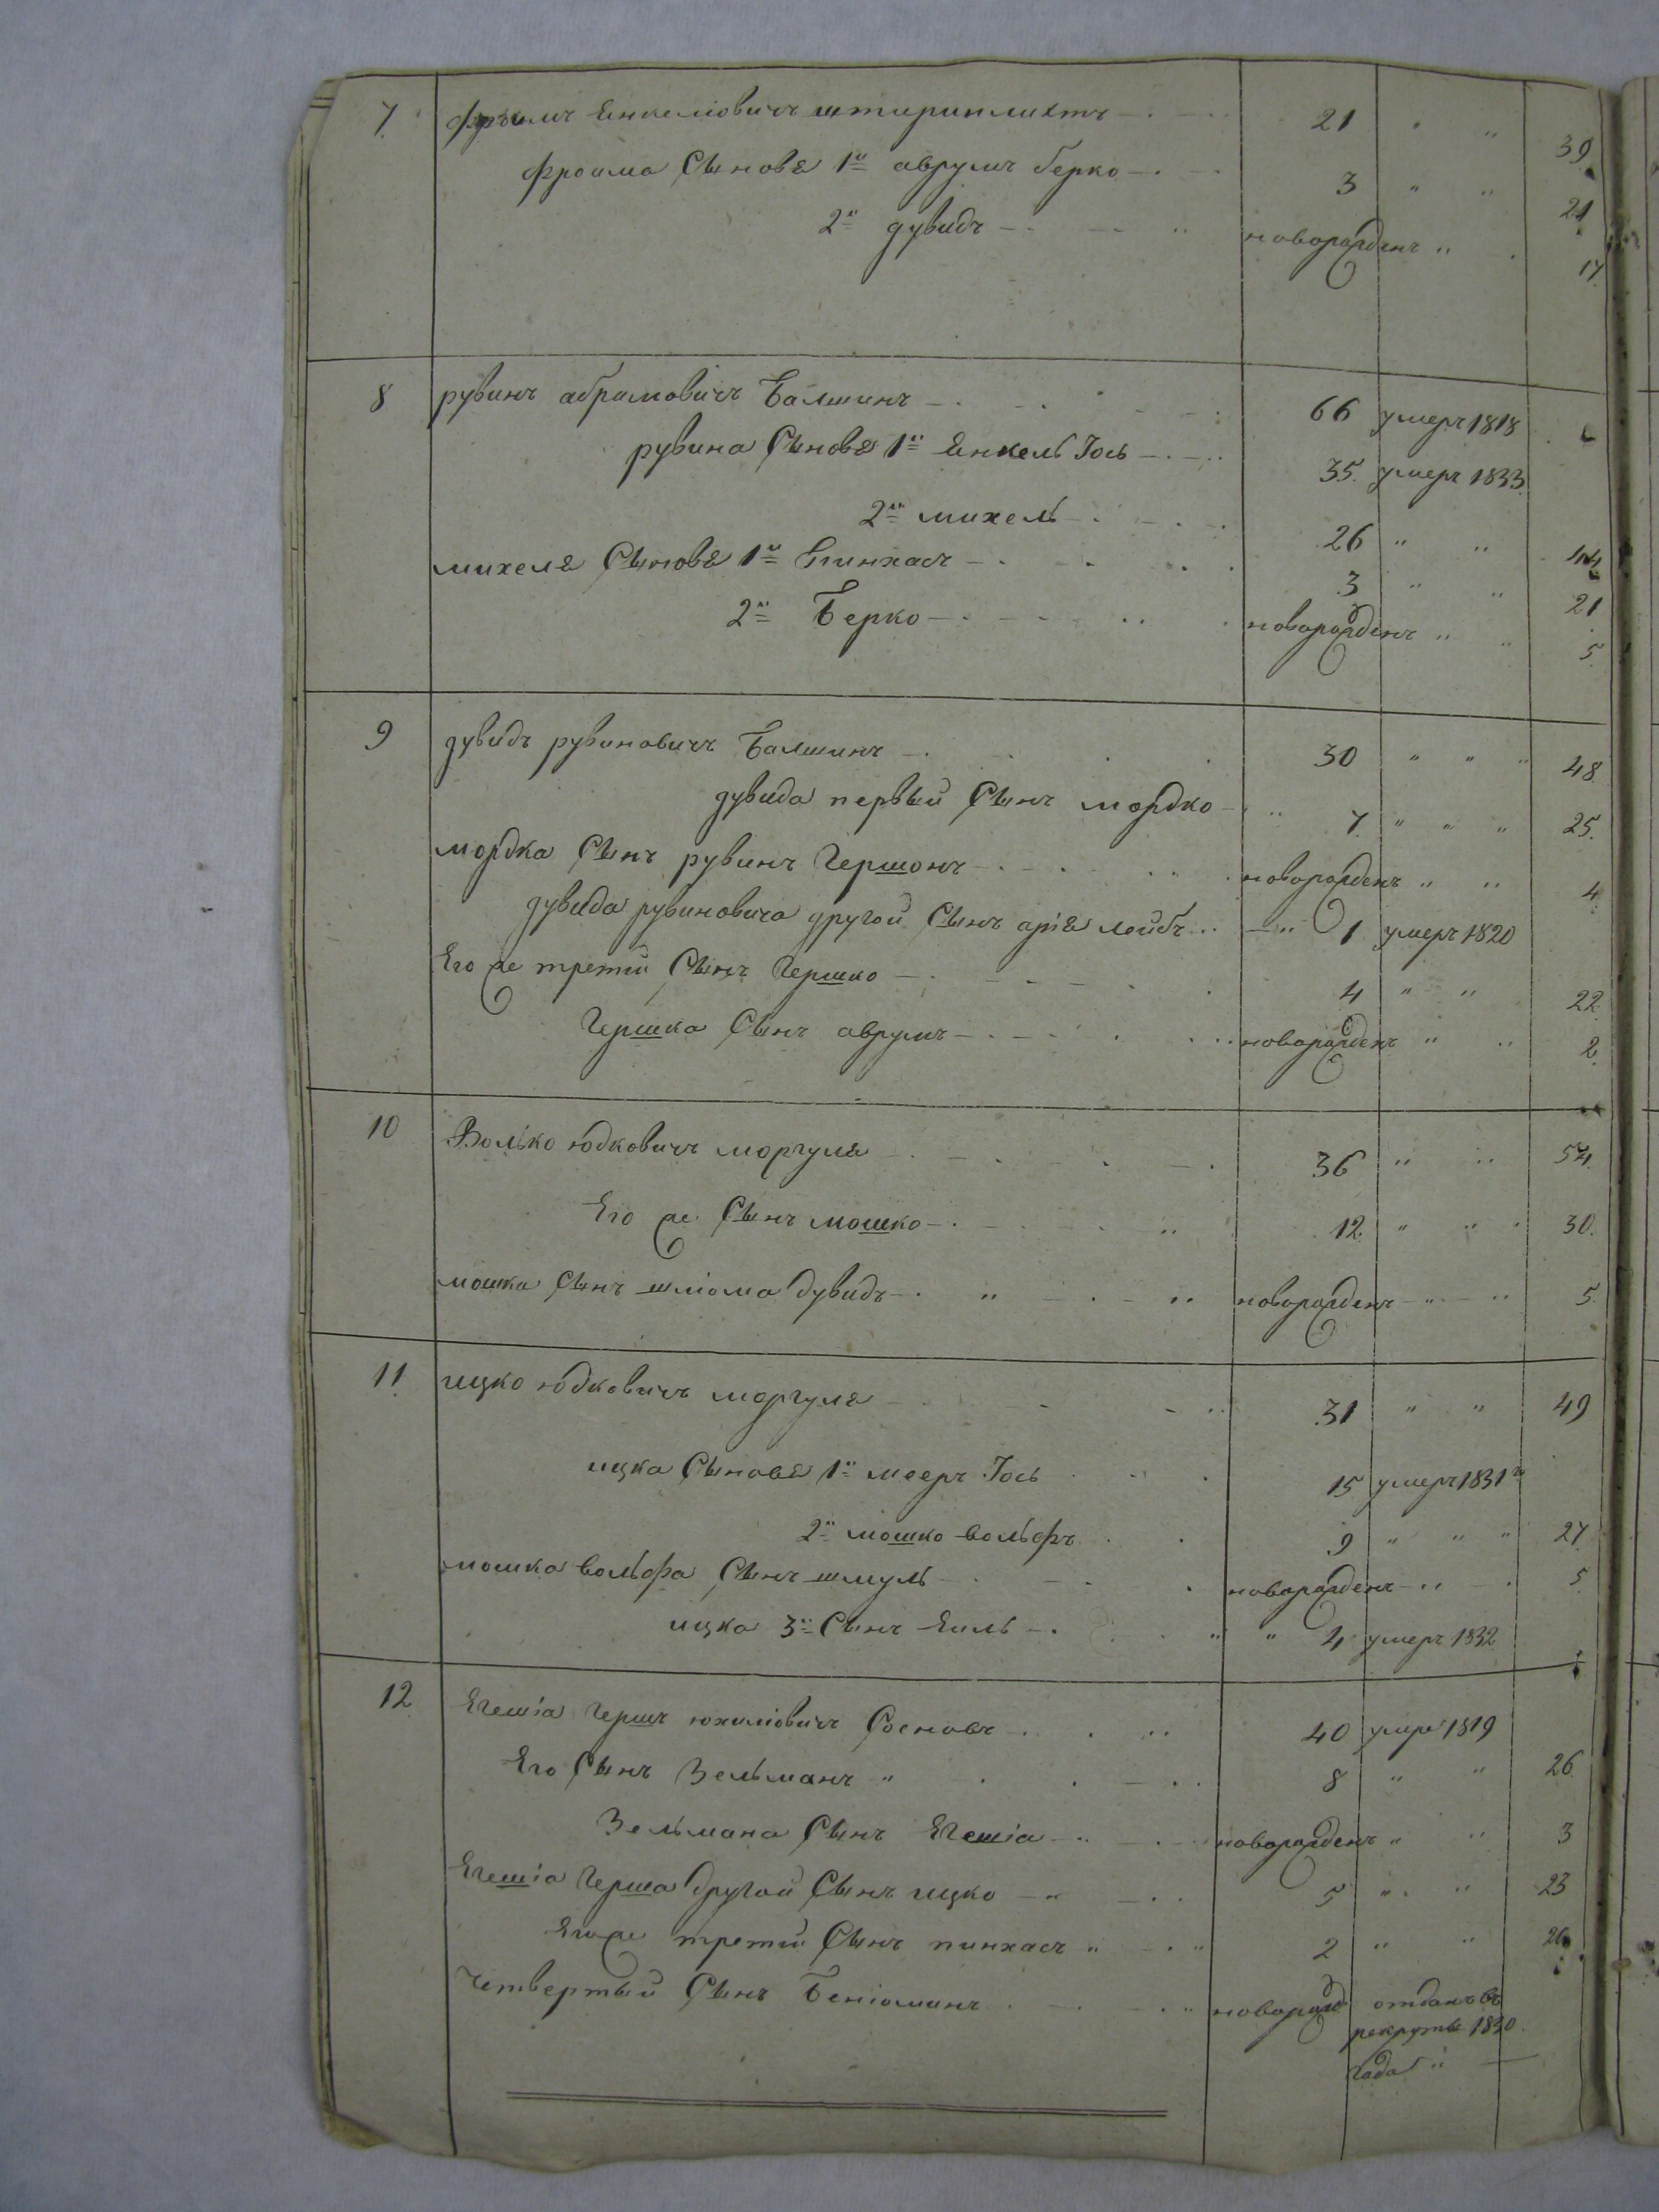 7 Фроимъ Енкеліовичъ штириплихтъ 21 " " 39
Фроима Сыновя 1й аврумъ берко 3 " " 21
2й дувидъ новорожденъ " 17
8 рувинъ абрамовичъ Балшинъ 66 умеръ 1818
рувина Сыновя 1й Енкель Іось 35 умеръ 1833
2й михель 26 " " 44
михеля Сыновя 1й пинхасъ 3 " " 21
2й Берко новорожденъ " " 5
9 дувидъ рувиновичъ Балшинъ 30 " " " 48
дувида первый Сынъ мордко " 7 " " " 25
мордка Сынъ рувинъ Гершонъ новорожденъ " " 4
дувида рувиновича другой Сынъ арія лейбъ " 1 умеръ 1820
Его же третій Сынъ Гершко 4 " " 22
Гершка Сынъ аврумъ новорожденъ " " 2
10 Волько юдковичъ моргуля 36 " " 54
Его же Сынъ мошко 12 " " 30
мошка Сынъ шліома дувидъ новорожденъ " " 5
11 ицко юдковичъ моргуля 31 " " 49
ицка Сыновя 1й мееръ Іось 15 умеръ 1831го
2й мошко вольфъ 9 " " " 27
мошка вольфа Сынъ шмуль новорожденъ " 5
ицка 3й Сынъ Еиль " " 4 умеръ 1832
12 Егешіа Гершъ юхимовичъ Сосновъ 40 умеръ 1819
Его Сынъ Зельманъ " 8 " " 26
Зельмана Сынъ Егешіа новорожденъ " " 3
Егешіа Герша другой Сынъ ицко " 5 " " 23
Егоже третій Сынъ пинхасъ " " 2 " " 20
Четвертый Сынъ Беніоминъ " новорожд отданъ въ
рекруты 1830
Года "